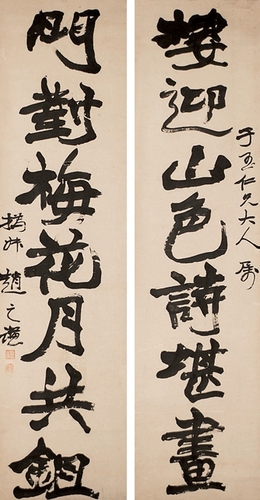 樓迎山色詩堪畫
仁兄大人屬
門對梅花月共鉏
撝叔趙之謙